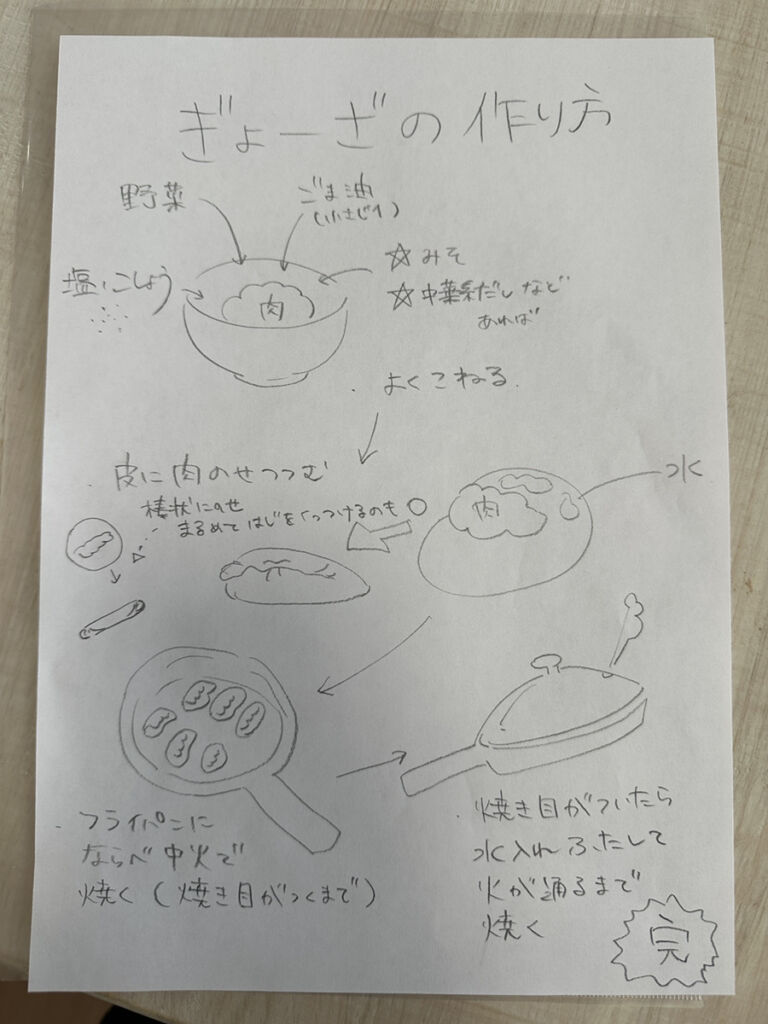 ぎょーざの作り方
野菜
ごま油
(小さじ1)
塩、こしょう
☆みそ
☆中華系だしなど
あれば
肉
・よくこねる
・皮に肉のせつつむ
棒状にのせ
まるめてはじをくっつけるのも○
肉
水
・フライパンに
ならべ中火で
焼く(焼き目がつくまで)
・焼き目がついたら
水入れふたして
火が通るまで
焼く
完